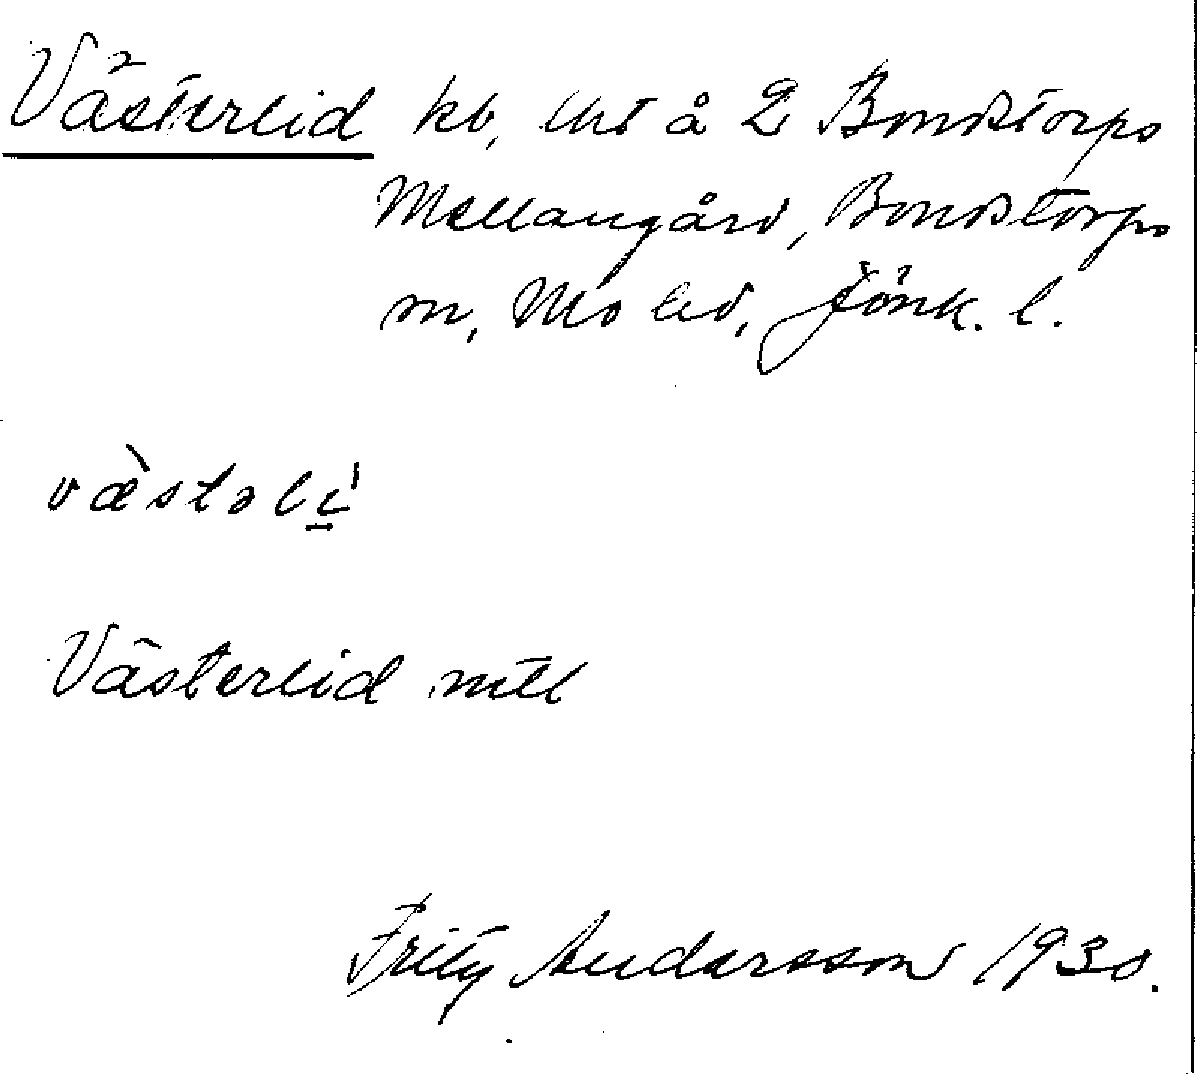 Västerlid kb, lht å 2 Bondstorps
Mellangård, Bondstorps
sn, Mo hd, Jönk. l.
væ̀stəlı̱́
Västerlid mtl
Fritz Andersson 1930.